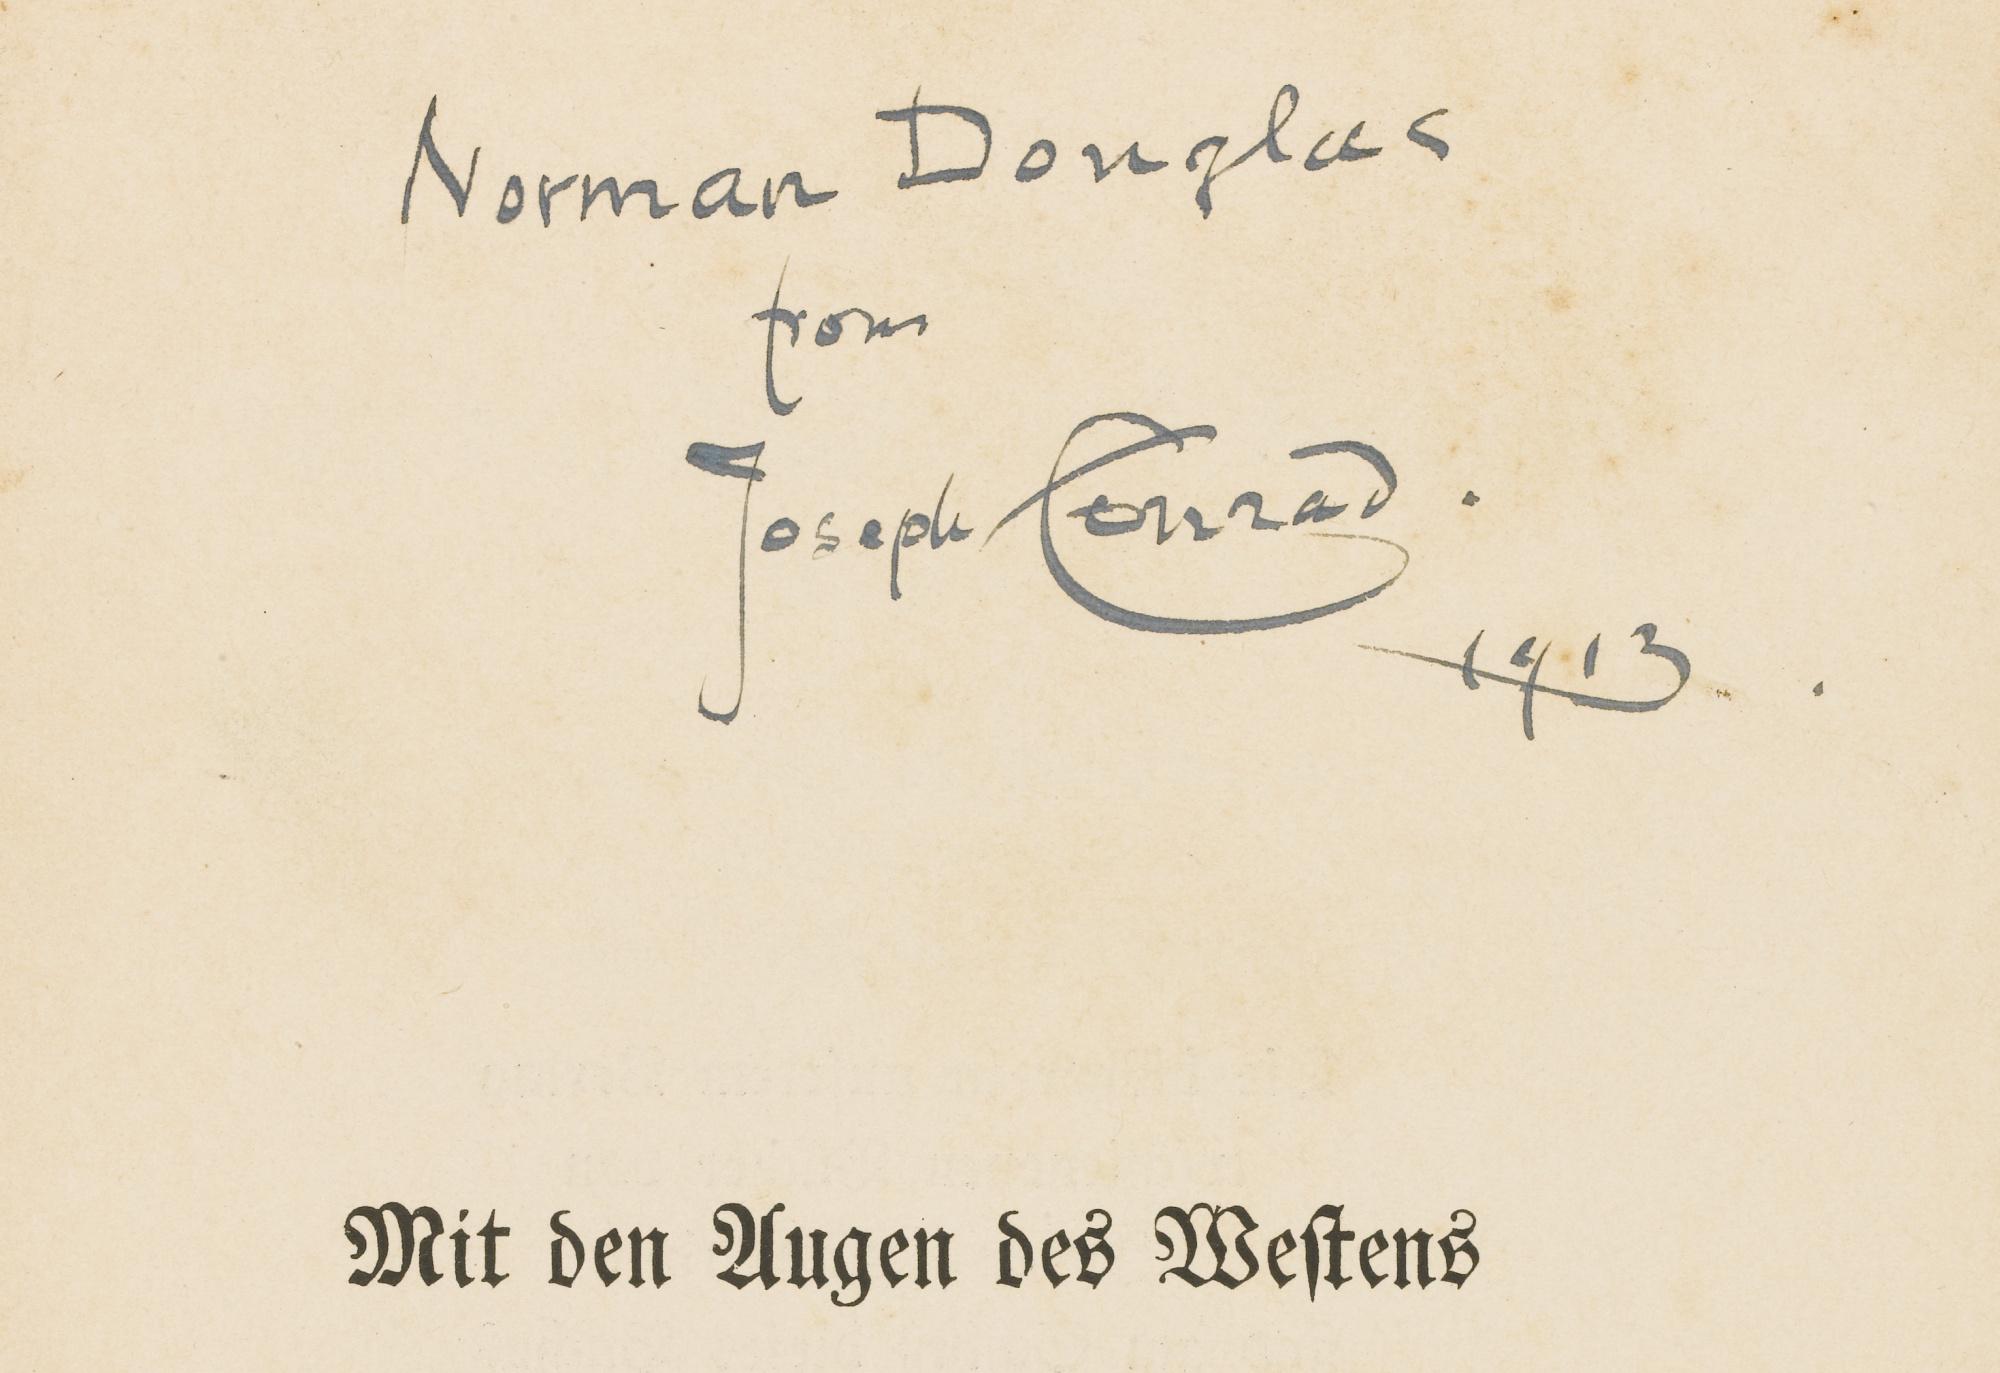 Norman Douglas
from
Joseph Conrad.
1913.
Mit den Augen des Westens